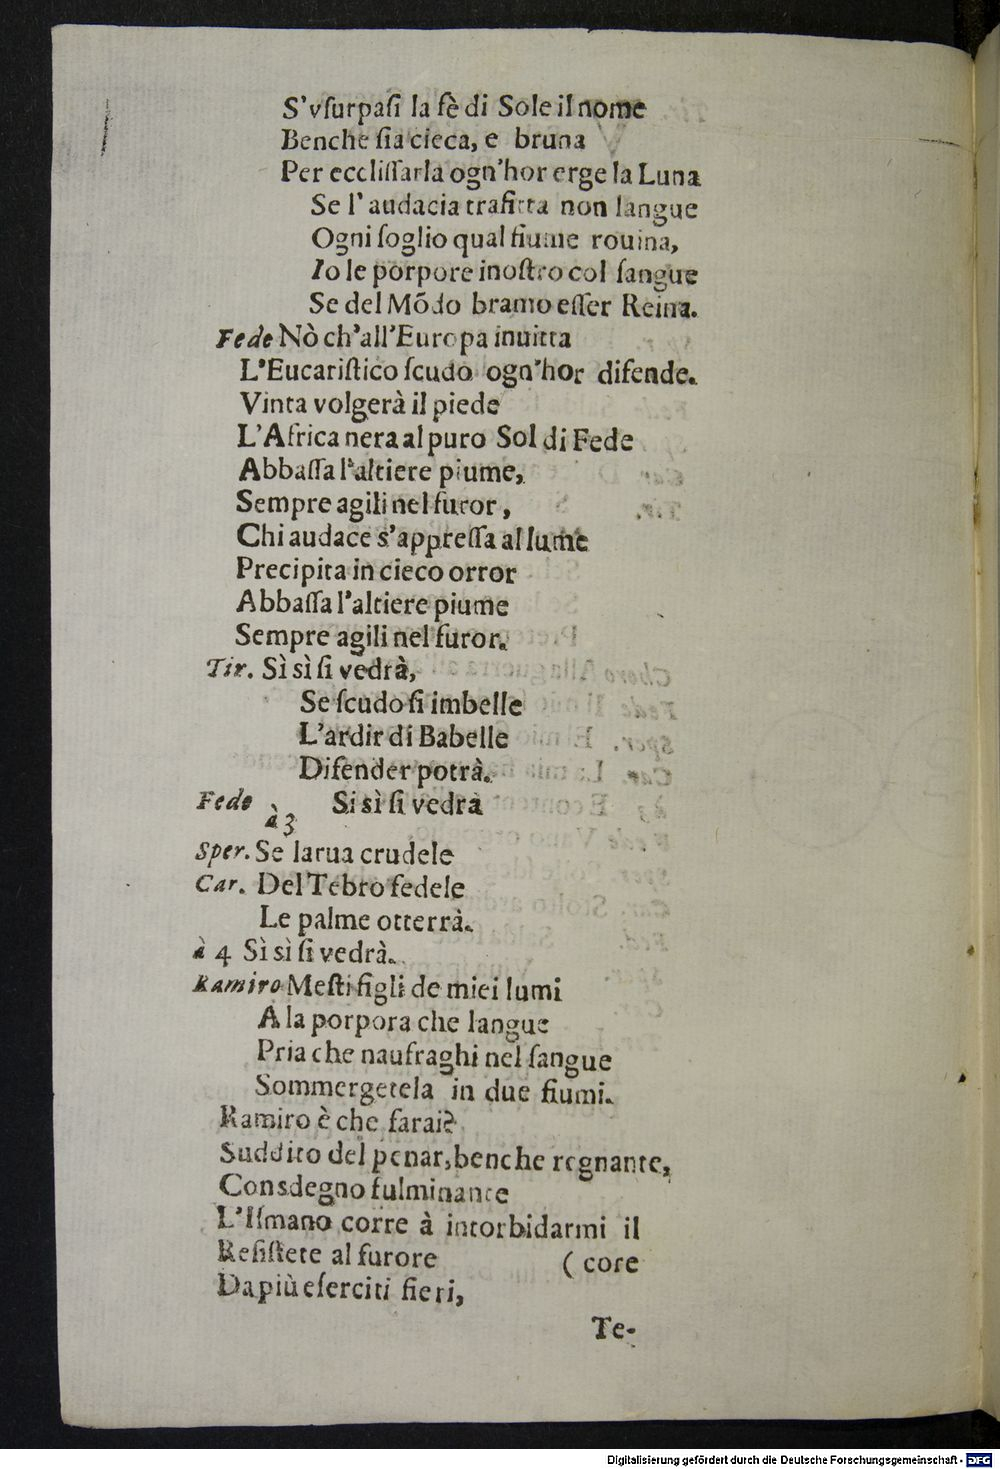 S'vſurpaſi la fè di Sole il nome
Benche ſia cieca, e bruna
Per eccliſſarla ogn'hor erge la Luna
Se l'audacia trafitta non langue
Ogni ſoglio qual fiume rouina,
Io le porpore inoſtro col ſangue
Se del Mõdo bramo eſſer Reina.
Fede Nò ch'all'Europa inuitta
L'Eucariſtico ſcudo ogn'hor difende.
Vinta volgerà il piede
L'Africa nera al puro Sol di Fede
Abbaſſa l'altiere piume,
Sempre agili nel furor,
Chi audace s'appreſſa al lume
Precipita in cieco orror
Abbaſſa l'altiere piume
Sempre agili nel furor.
Tir. Sì sì ſi vedrà,
Se ſcudo ſi imbelle
L'ardir di Babelle
Difender potrà.
Fede à 3 Si sì ſi vedrà
Sper. Se larua crudele
Car. Del Tebro fedele
Le palme otterrà.
à 4 Sì sì ſi vedrà.
Ramiro Meſti figli de miei lumi
A la porpora che langue
Pria che naufraghi nel ſangue
Sommergetela in due fiumi.
Ramiro è che farai?
Suddito del penar, benche regnante,
Con sdegno fulminante
L'Iſmano corre à intorbidarmi il
Reſiſtete al furore (core
Da più eſerciti fieri,
Te-
Digitalisierung gefördert durch die Deutsche Forschungsgemeinschaft - DFG